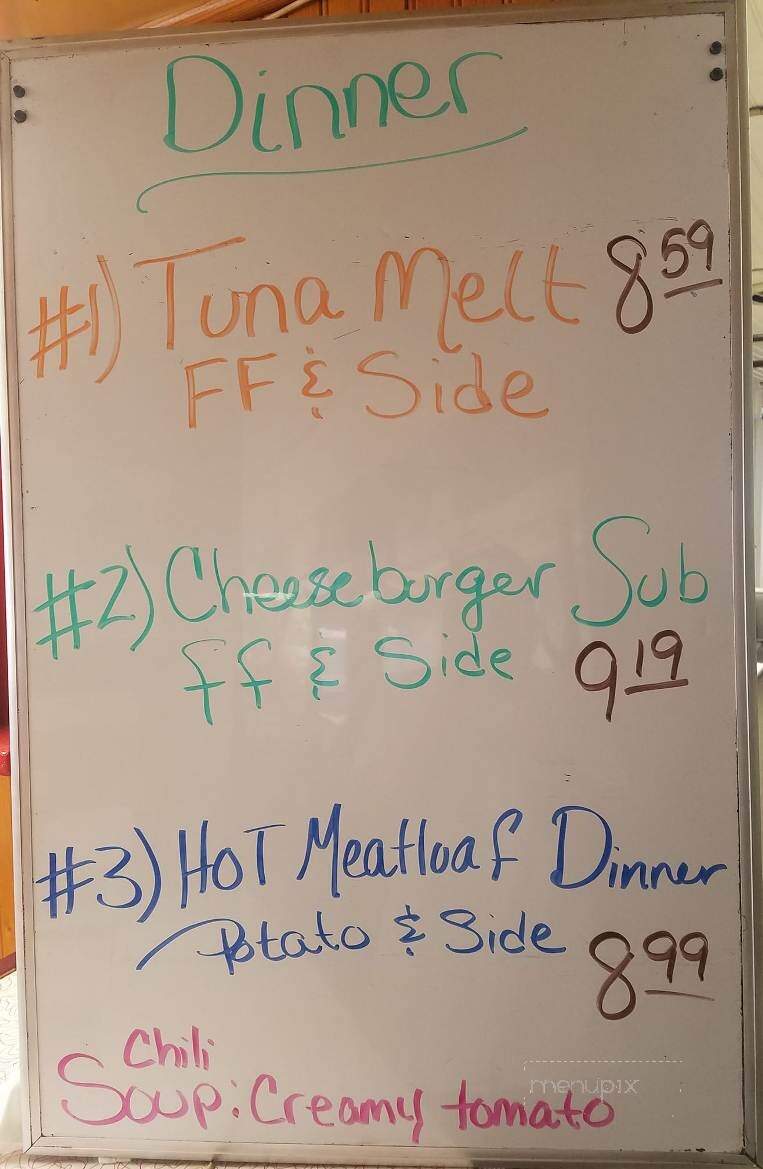 Dinner
#1) Tuna Melt 8 59
FF & Side
#2) Cheeseburger Sub
ff & Side 9 19
#3) HOT Meatloaf Dinner
Potato & Side 8 99
Chili
Soup: Creamy tomato
menupix